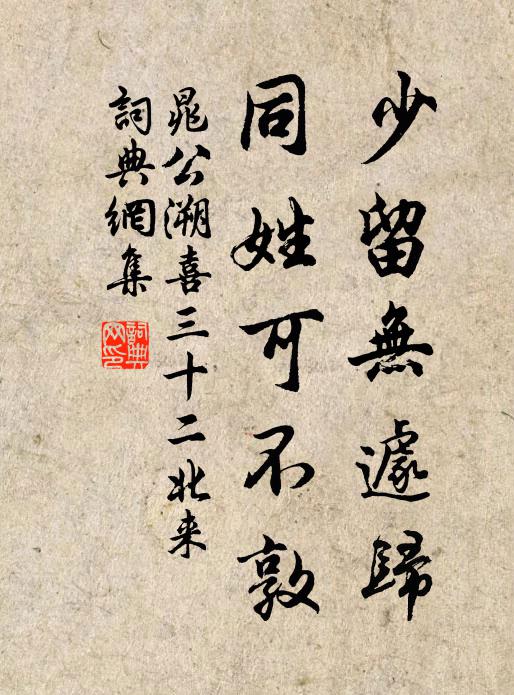 少留無遽歸
同姓可不敦
晁公溯喜三十二北来
詞典網集
詞典网印